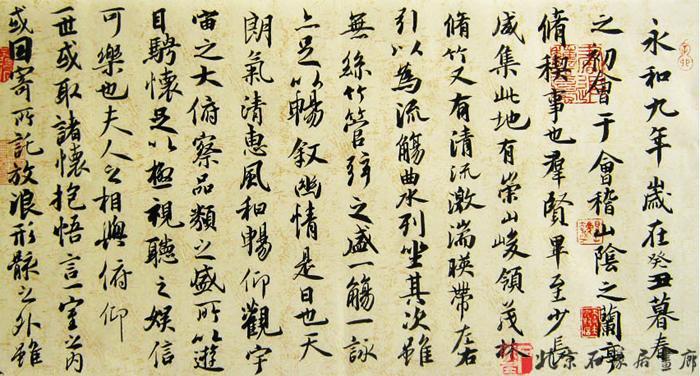 永和九年歲在癸丑暮春
之初會于會稽山陰之蘭亭
脩稧事也羣賢畢至少長
咸集此地有崇山峻領茂林
脩竹又有清流激湍暎帶左右
引以為流觴曲水列坐其次雖
無絲竹管弦之盛一觴一詠
亦足以暢叙幽情是日也天
朗氣清惠風和暢仰觀宇
宙之大俯察品類之盛所以遊
目騁懷足以極視聽之娛信
可樂也夫人之相與俯仰
一世或取諸懷抱悟言一室之內
或因寄所託放浪形骸之外雖
北京石豫居畫廊